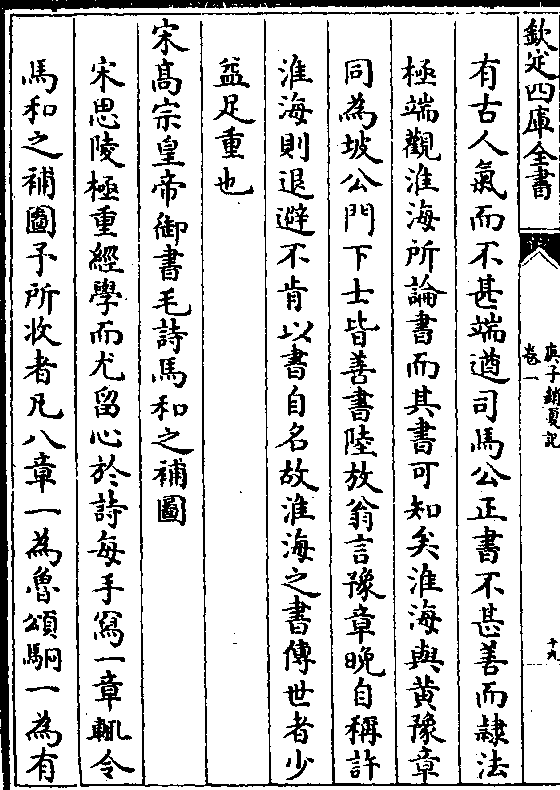 欽定四庫全書
庚子銷夏記
卷一
十九
有古人氣而不甚端遒司馬公正書不甚善而隷法
極端觀淮海所論書而其書可知矣淮海與黄豫章
同為坡公門下士皆善書陸放翁言豫章晚自稱許
淮海則退避不肯以書自名故淮海之書傳世者少
益足重也
宋髙宗皇帝御書毛詩馬和之補圖
宋思陵極重經學而尤留心於詩每手寫一章輒令
馬和之補圖予所收者凡八章一為魯頌駉一為有